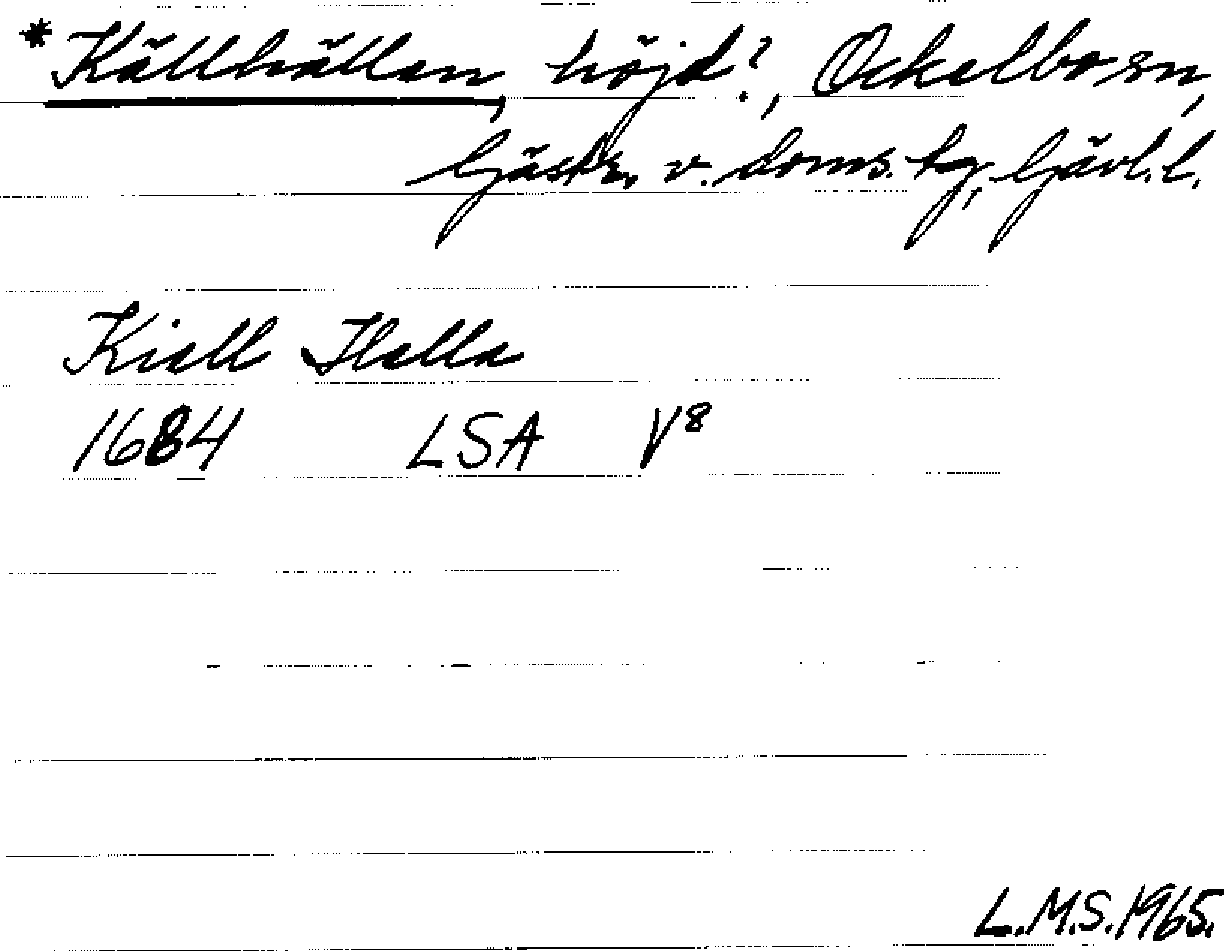 *Källhällen, höjd?, Ockelbo sn,
Gästr. v. doms. hg, Gävl. l.
Kiell Hella
1684 LSA V8
L.M.S. 1965.